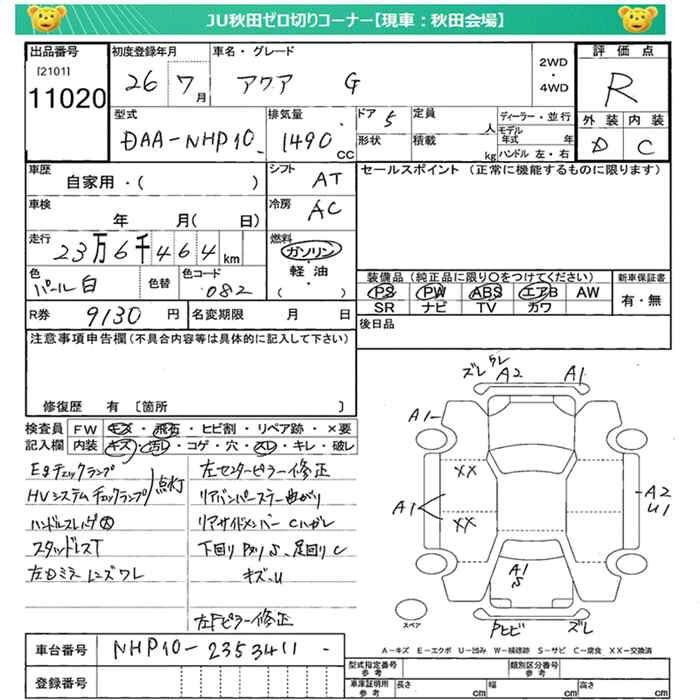 JU秋田ゼロ切りコーナー【現車：秋田会場】
出品番号 初度登録年月 車名・グレード 2WD ・ 4WD 評価点
[2101] 26 7月 アクア G R
11020
型式 排気量 ドア 5 定員 人 ディーラー・並行 外装 内装
DAA-NHP10 1490 CC 形状 積載 kg モデル年式 年 ハンドル 左・右 D C
車歴 シフト AT セールスポイント (正常に機能するものに限ります)
自家用・( )
車検 冷房 AC
年 月( 日)
走行 燃料
23万6千464 km ガソリン
色 色替 色コード 軽油 装備品 (純正品に限り○をつけてください) 新車保証書
パール白 082 ・( ) PS PW ABS エアB AW 有・無
SR ナビ TV カワ
R券 9130円 名変期限 月 日 後日品
注意事項申告欄(不具合内容等は具体的に記入して下さい)
修復歴 有 〔箇所 〕
検査員 FW キズ・飛石・ヒビ割・リペア跡・×要
記入欄 内装 キズ・汚レ・コゲ・穴・スレ・キレ・破レ
Egチェックランプ 左センターピラー修正
HVシステムチェックランプ 点灯 リアバンパーステー曲がり
ハンドルスレ リアサイドメンバーCハガレ
スタッドレスT 下回りPハリS、足回りC
左Dミラーレンズワレ キズ・U
左Fピラー修正
ズレ ワレ A2 A1
A1
XX
A1 A2 U1
XX
A1 S
スペア PヒビI ズレ
A-キズ E-エクボ U-凹み W-補修跡 S-サビ C-腐食 XX-交換済
車台番号 NHP10-2353411-
登録番号
型式指定番号 参考 類別区分番号 参考
車庫証明用 参考 長さ cm 幅 cm 高さ cm